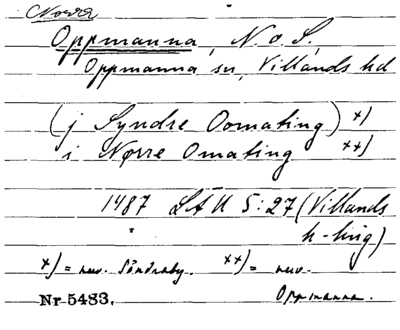 Norra
Oppmanna, N. o S.,
Oppmanna sn, Villands hd
(j Syndre Oomating) x)
i Nørre Omating xx)
1487 LÄU 5:27 (Villands
h-ting)
x) = nuv. Söndraby. xx) = nuv.
Nr 5483. Oppmanna.